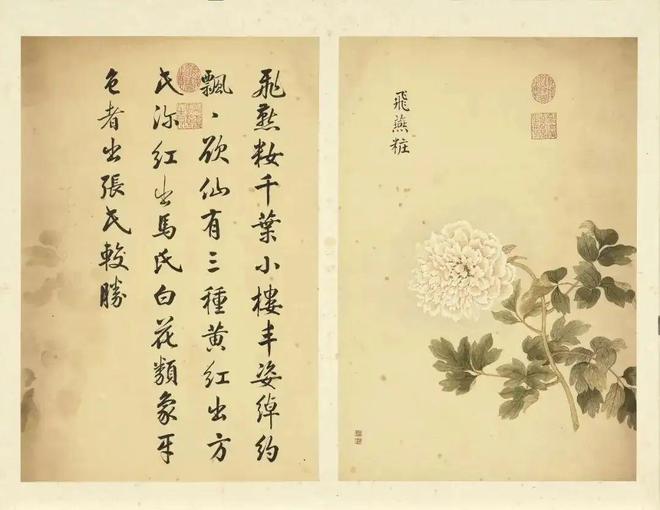 飛燕粧
飛燕籹千葉小樓丰姿綽約
飄丶欲仙有三種黃紅出方
氏深紅出馬氏白花類象牙
色者出張氏較勝